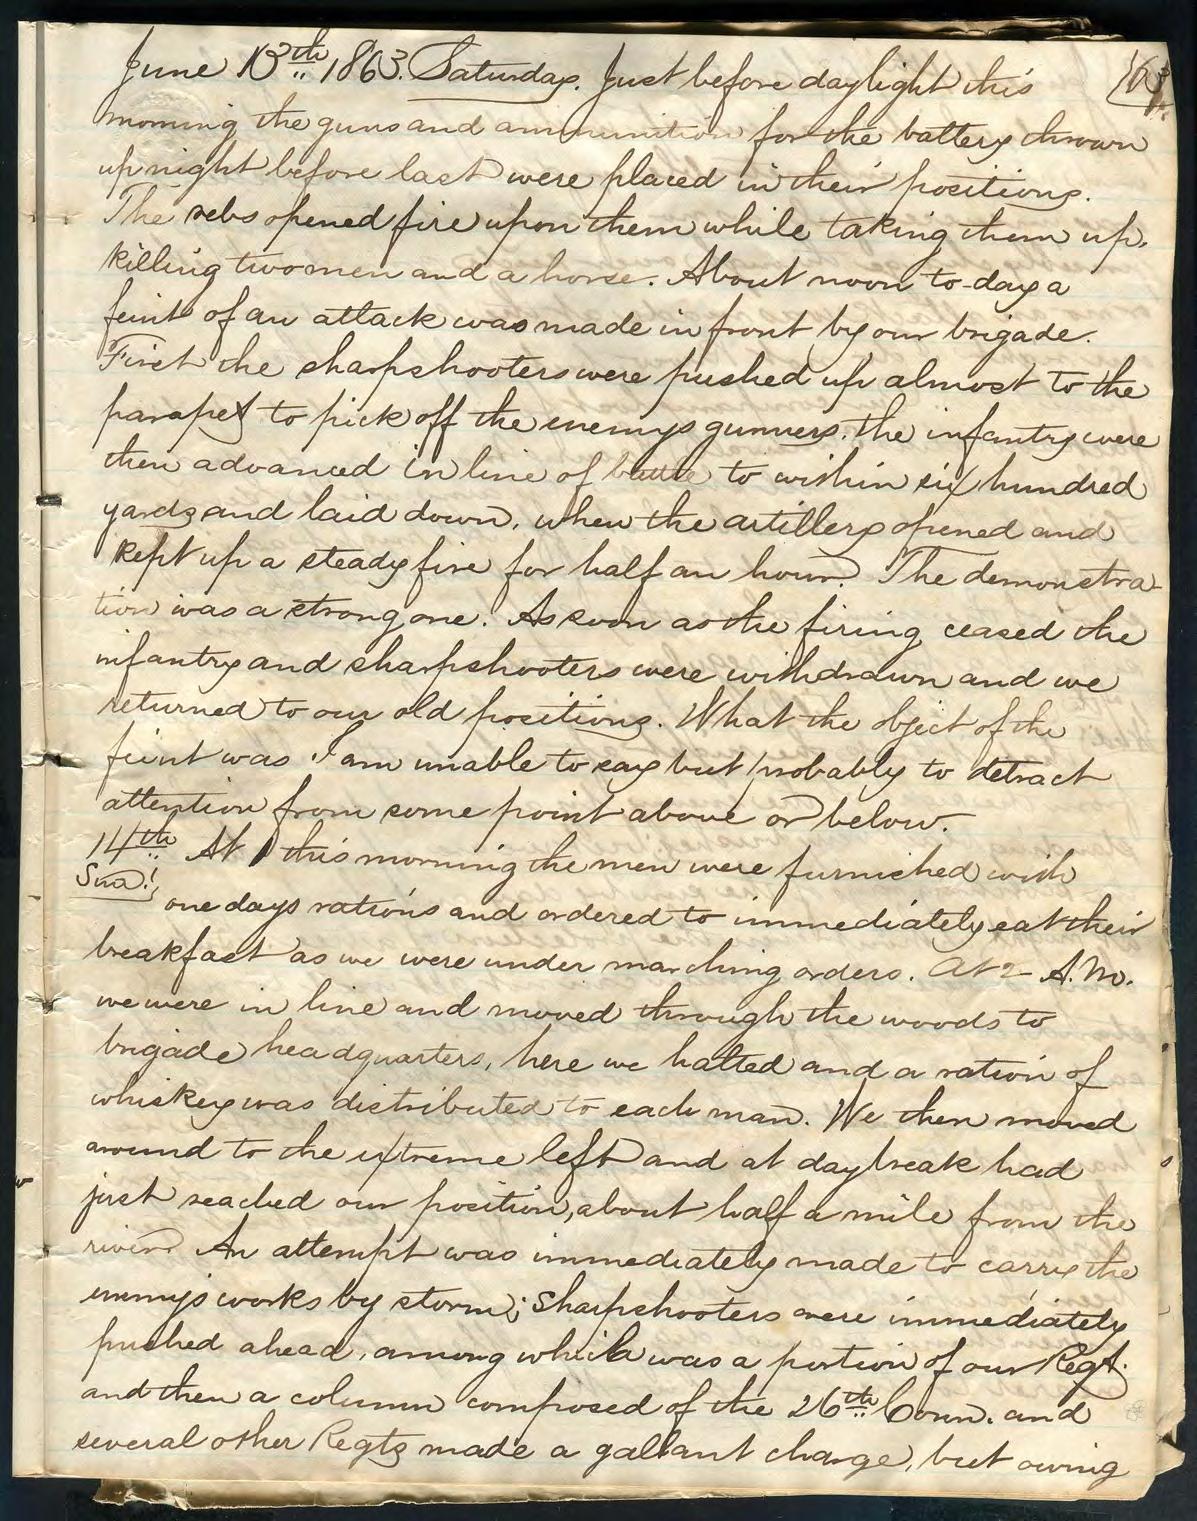 June 13th 1863. Saturday. Just before daylight this
morning the guns and ammunition for the battery thrown
up night before last were placed in their positions.
The rebs opened fire upon them while taking them up,
killing two men and a horse. About noon to-day a
feint of an attack was made in front by our brigade.
First the sharpshooters were pushed up almost to the
parapet to pick off the enemys gunners, the infantry were
then advanced in line of battle to within six hundred
yards and laid down, when the artillery opened and
kept up a steady fire for half an hour. The demonstra-
tion was a strong one. As soon as the firing ceased the
infantry and sharpshooters were withdrawn and we
returned to our old positions. What the object of the
feint was I am unable to say but probably to detract
attention from some point above or below.
14th At 1 this morning the men were furnished with
one days rations and ordered to immediately eat their
breakfast as we were under marching orders. At 2 A.M.
we were in line and moved through the woods to
brigade headquarters, here we halted and a ration of
whiskey was distributed to each man. We then moved
around to the extreme left and at daybreak had
just reached our position, about half a mile from the
river. An attempt was immediately made to carry the
enemys works by storm; Sharpshooters were immediately
pushed ahead, among which was a portion of our Regt.
and then a column composed of the 26th Conn. and
several other Regts made a gallant charge, but owing